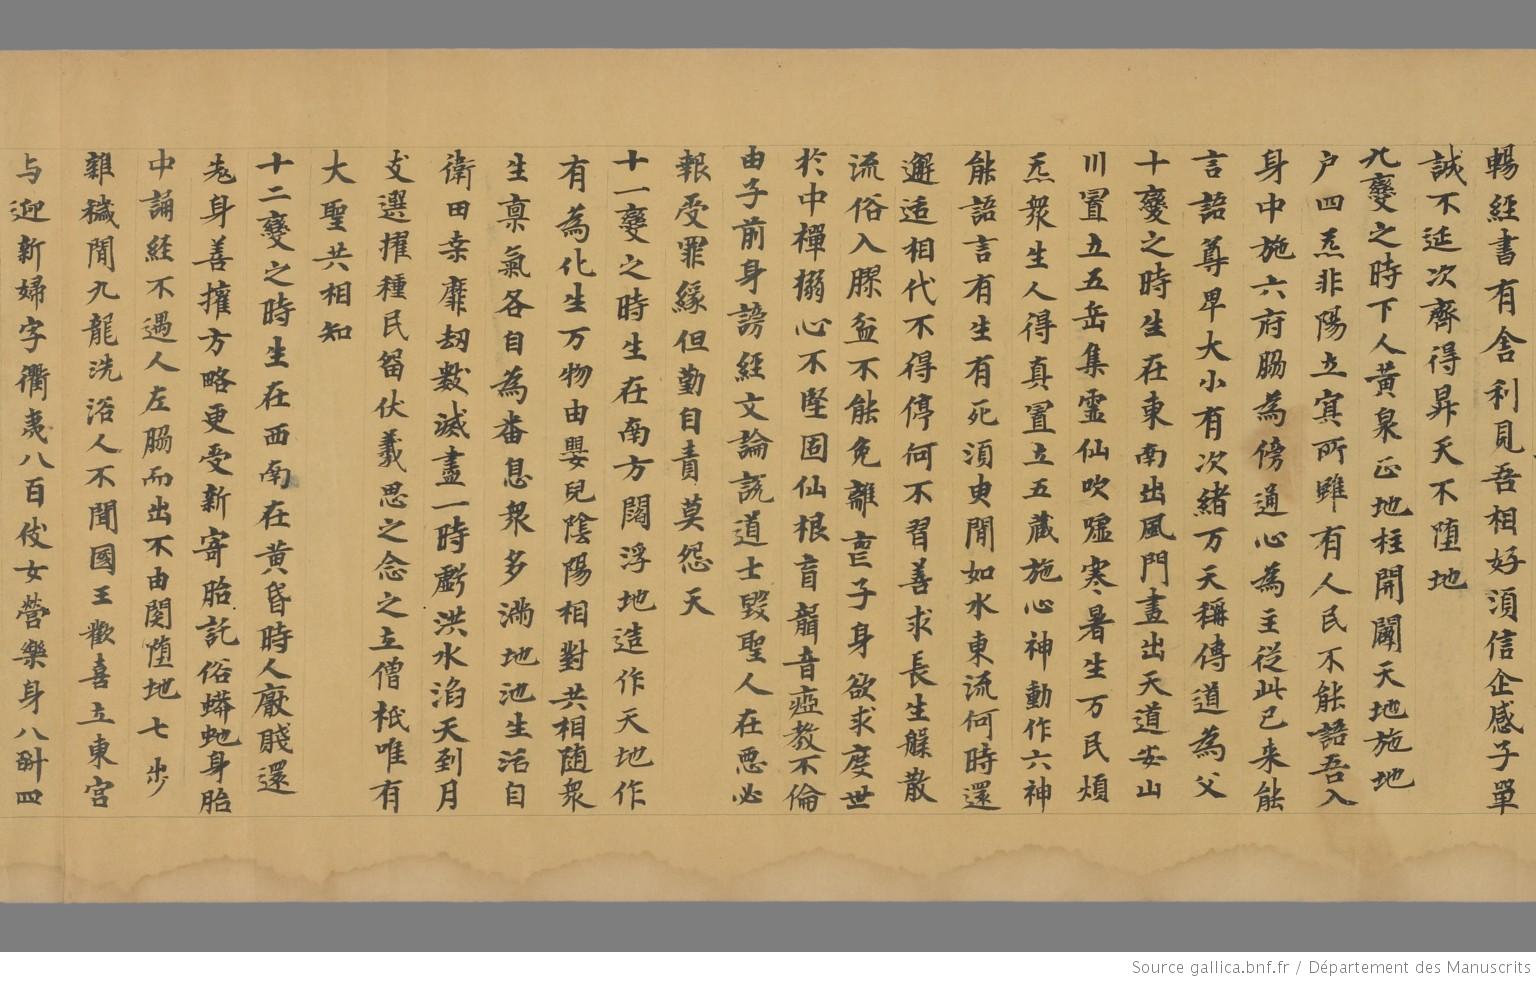 暢經書有舍利見吾相好須信企感子單
誠不延次齊得昇天不堕地
九變之時下人黃泉正地柱開闢天地施地
户四炁非陽立寅所雖有人民不能語吾入
身中施六府脇為傍通心為主從此已来能
言語尊卑大小有次緒万天稱傳道為父
十變之時生在東南出風門畫出天道安山
川置立五岳集靈仙吹噓寒暑生万民煩
炁衆生人得真置立五藏施心神動作六神
能語言有生有死須臾間如水東流何時還
邂逅相代不得停何不習善求長生躶散
流俗入膠盆不能免離喪子身欲求度世
於中禪搦心不堅固仙根盲聾音瘂教不倫
由子前身謗經文論説道士毀聖人在悪必
報受罪緣但勤自責莫怨天
十一變之時生在南方閻浮地造作天地作
有為化生万物由嬰兒陰陽相對共相随衆
生稟氣各自為畨息衆多满地池生活自
衛田桒靡刼數滅盡一時虧洪水滔天到月
支選擢種民留伏羲思之念之立僧袛唯有
大聖共相知
十二變之時生在西南在黃昏時人厭賤還
老身善擁方略更受新寄胎託俗蟒虵身胎
中誦經不遇人左脇而出不由関堕地七步
雜穢間九龍洗浴人不聞國王歡喜立東宮
与迎新婦字衢夷八百伎女營樂身八斛四